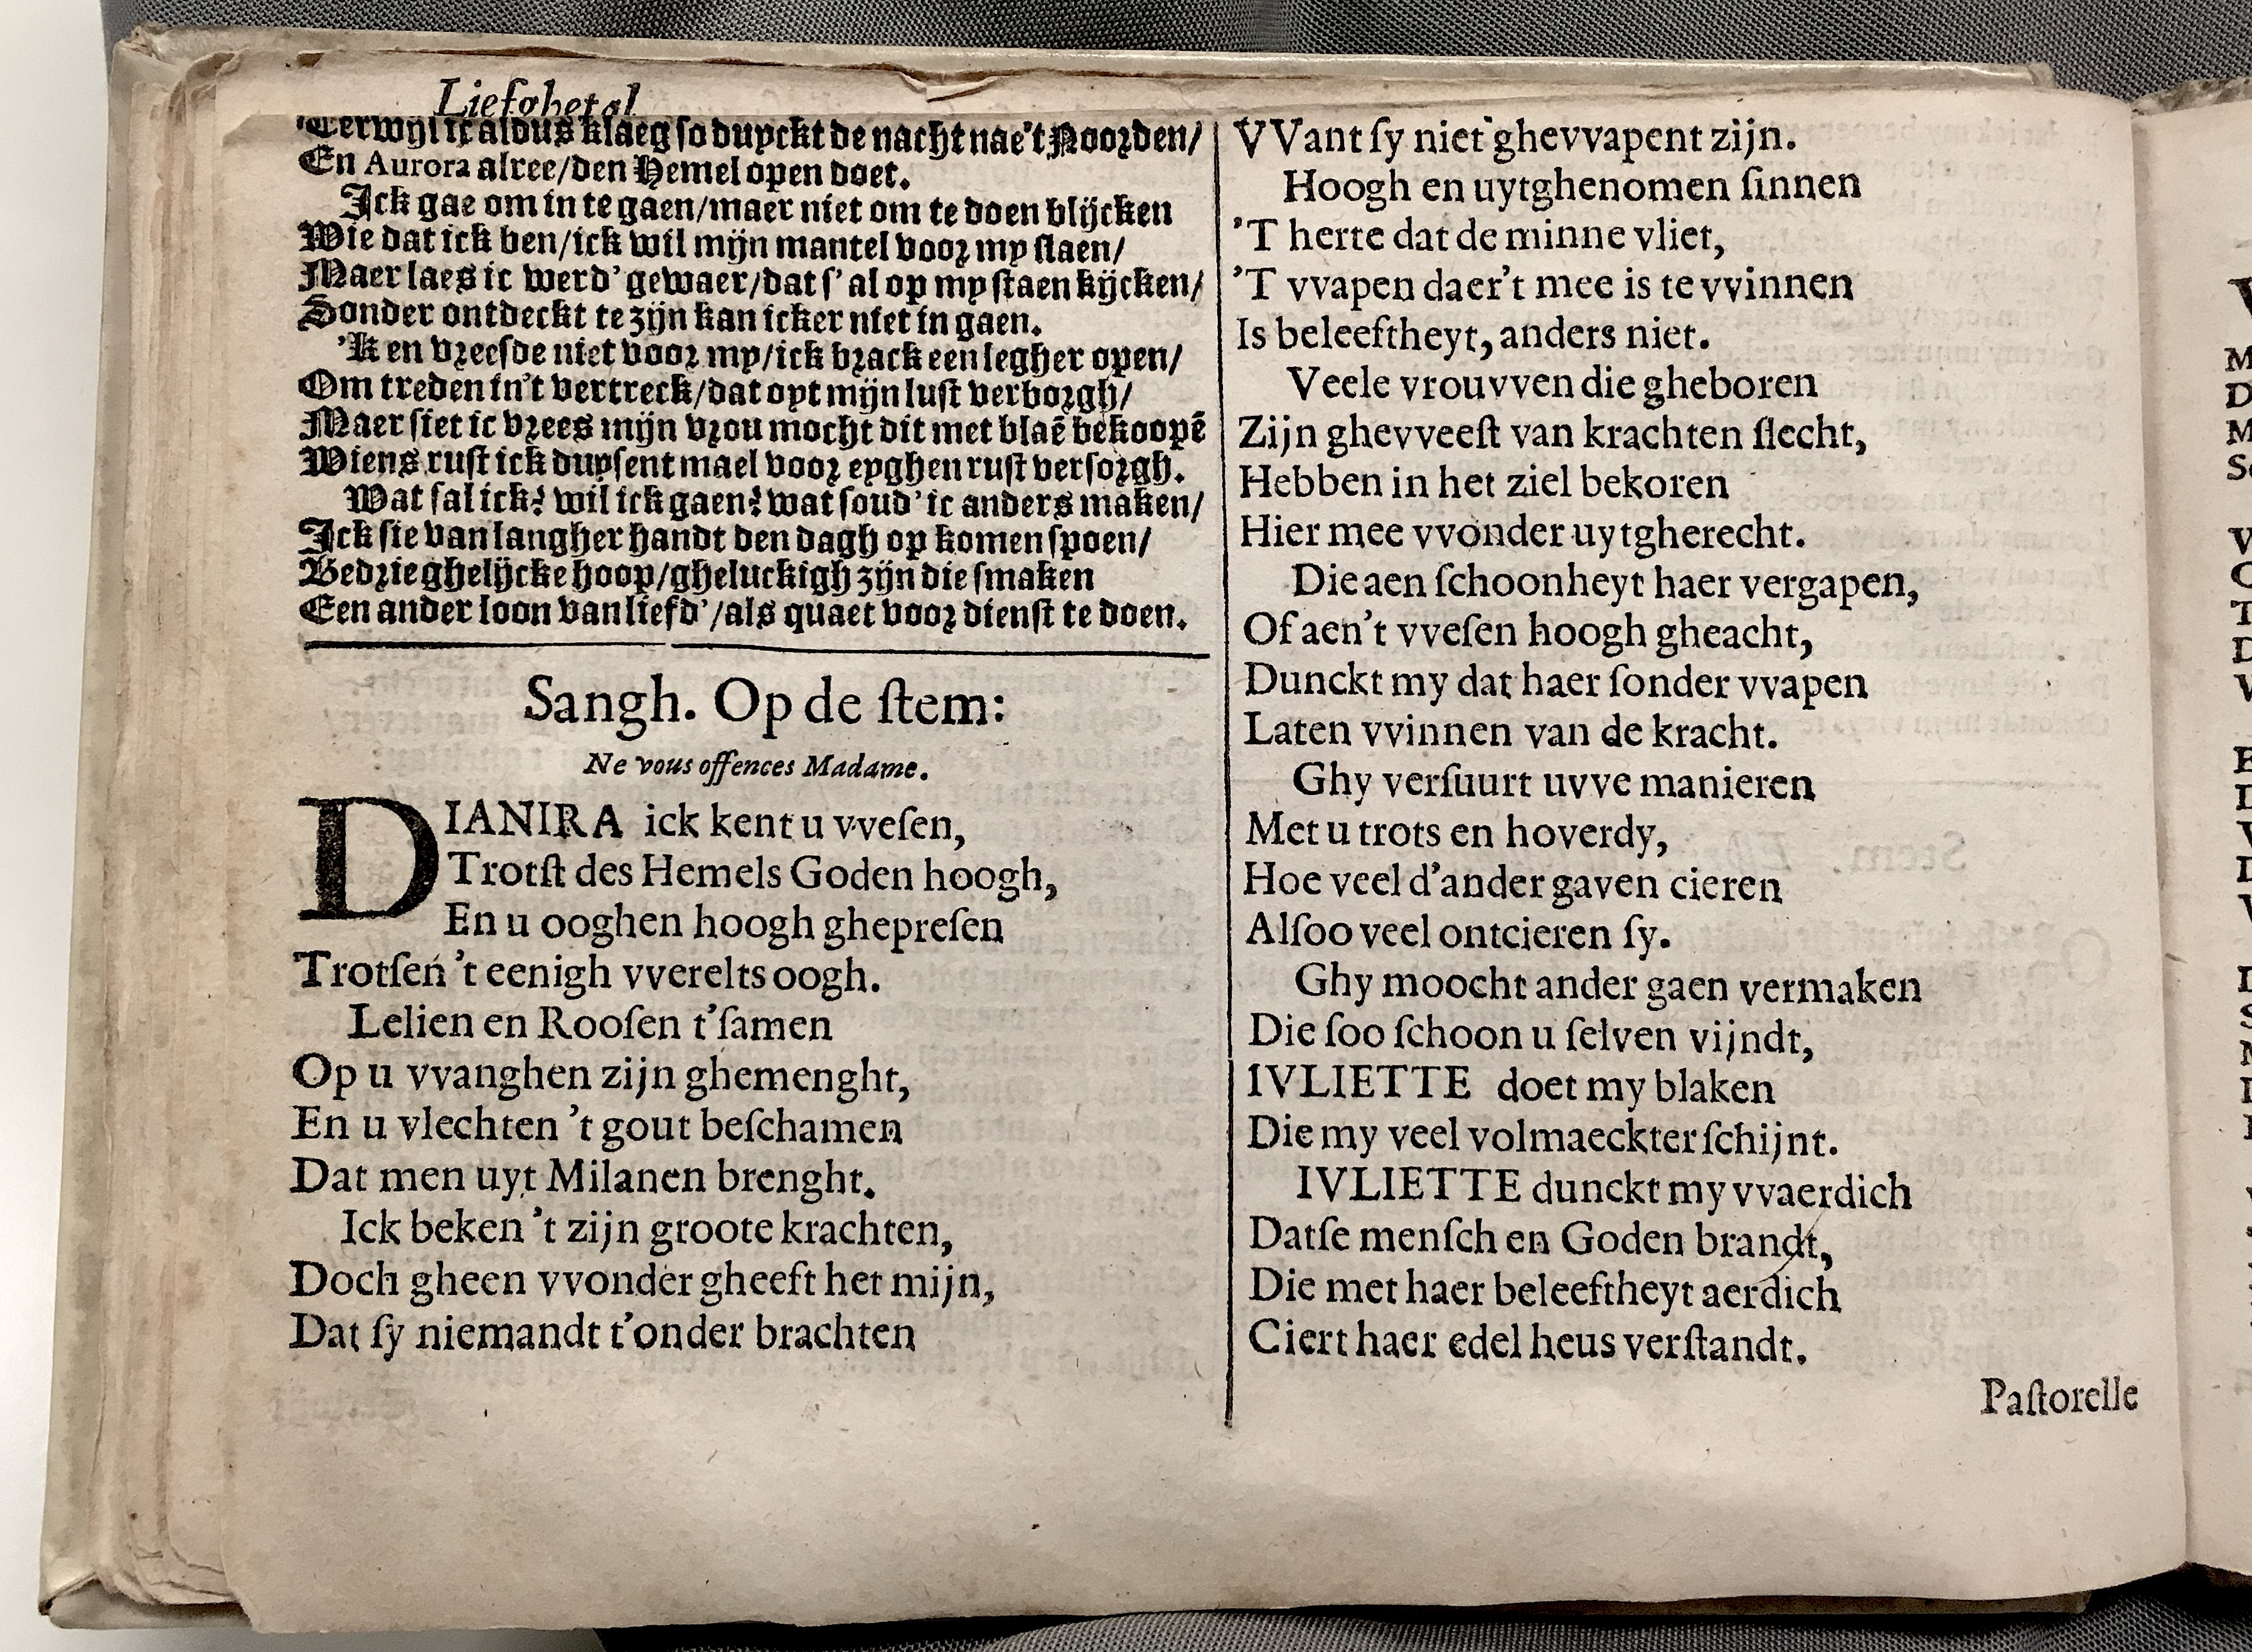 Liefghetal
Terwijl ic aldus klaeg so duyckt de nacht nae't Noorden/
En Aurora alree/den Hemel open doet.
Ick gae om in te gaen/maer niet om te doen blijcken
Wie dat ick ben/ick wil mijn mantel voor my slaen/
Maer laes ic werd' gewaer/dat s' al op my staen kijcken/
Sonder ontdeckt te zijn kan icker niet in gaen.
'K en vreesde niet voor my/ick brack een legher open/
Om treden in't vertreck/dat opt mijn lust verborgh/
Maer siet ic vrees mijn vrou mocht dit met blaẽ bekoopẽ
Wiens rust ick duysent mael voor eyghen rust versorgh.
Wat sal ick? wil ick gaen? wat soud' ic anders maken/
Ick sie van langher handt den dagh op komen spoen/
Bedrieghelijcke hoop/gheluckigh zijn die smaken
Een ander loon van liefd'/als quaet voor dienst te doen.
Sangh. Op de ſtem:
Ne vous offences Madame.
DIANIRA ick kent u vveſen,
Trotſt des Hemels Goden hoogh,
En u ooghen hoogh ghepreſen
Trotſen 't eenigh vverelts oogh.
Lelien en Rooſen t'ſamen
Op u vvanghen zijn ghemenght,
En u vlechten 't gout beſchamen
Dat men uyt Milanen brenght.
Ick beken 't zijn groote krachten,
Doch gheen vvonder gheeft het mijn,
Dat ſy niemandt t'onder brachten
VVant ſy niet ghevvapent zijn.
Hoogh en uytghenomen ſinnen
'T herte dat de minne vliet,
'T vvapen daer't mee is te vvinnen
Is beleeftheyt, anders niet.
Veele vrouvven die gheboren
Zijn ghevveeſt van krachten ſlecht,
Hebben in het ziel bekoren
Hier mee vvonder uytgherecht.
Die aen ſchoonheyt haer vergapen,
Of aen't vveſen hoogh gheacht,
Dunckt my dat haer ſonder vvapen
Laten vvinnen van de kracht.
Ghy verſuurt uvve manieren
Met u trots en hoverdy,
Hoe veel d'ander gaven cieren
Alſoo veel ontcieren ſy.
Ghy moocht ander gaen vermaken
Die ſoo ſchoon u ſelven vijndt,
IVLIETTE doet my blaken
Die my veel volmaeckter ſchijnt.
IVLIETTE dunckt my vvaerdich
Datſe menſch en Goden brandt,
Die met haer beleeftheyt aerdich
Ciert haer edel heus verſtandt.
Paſtorelle